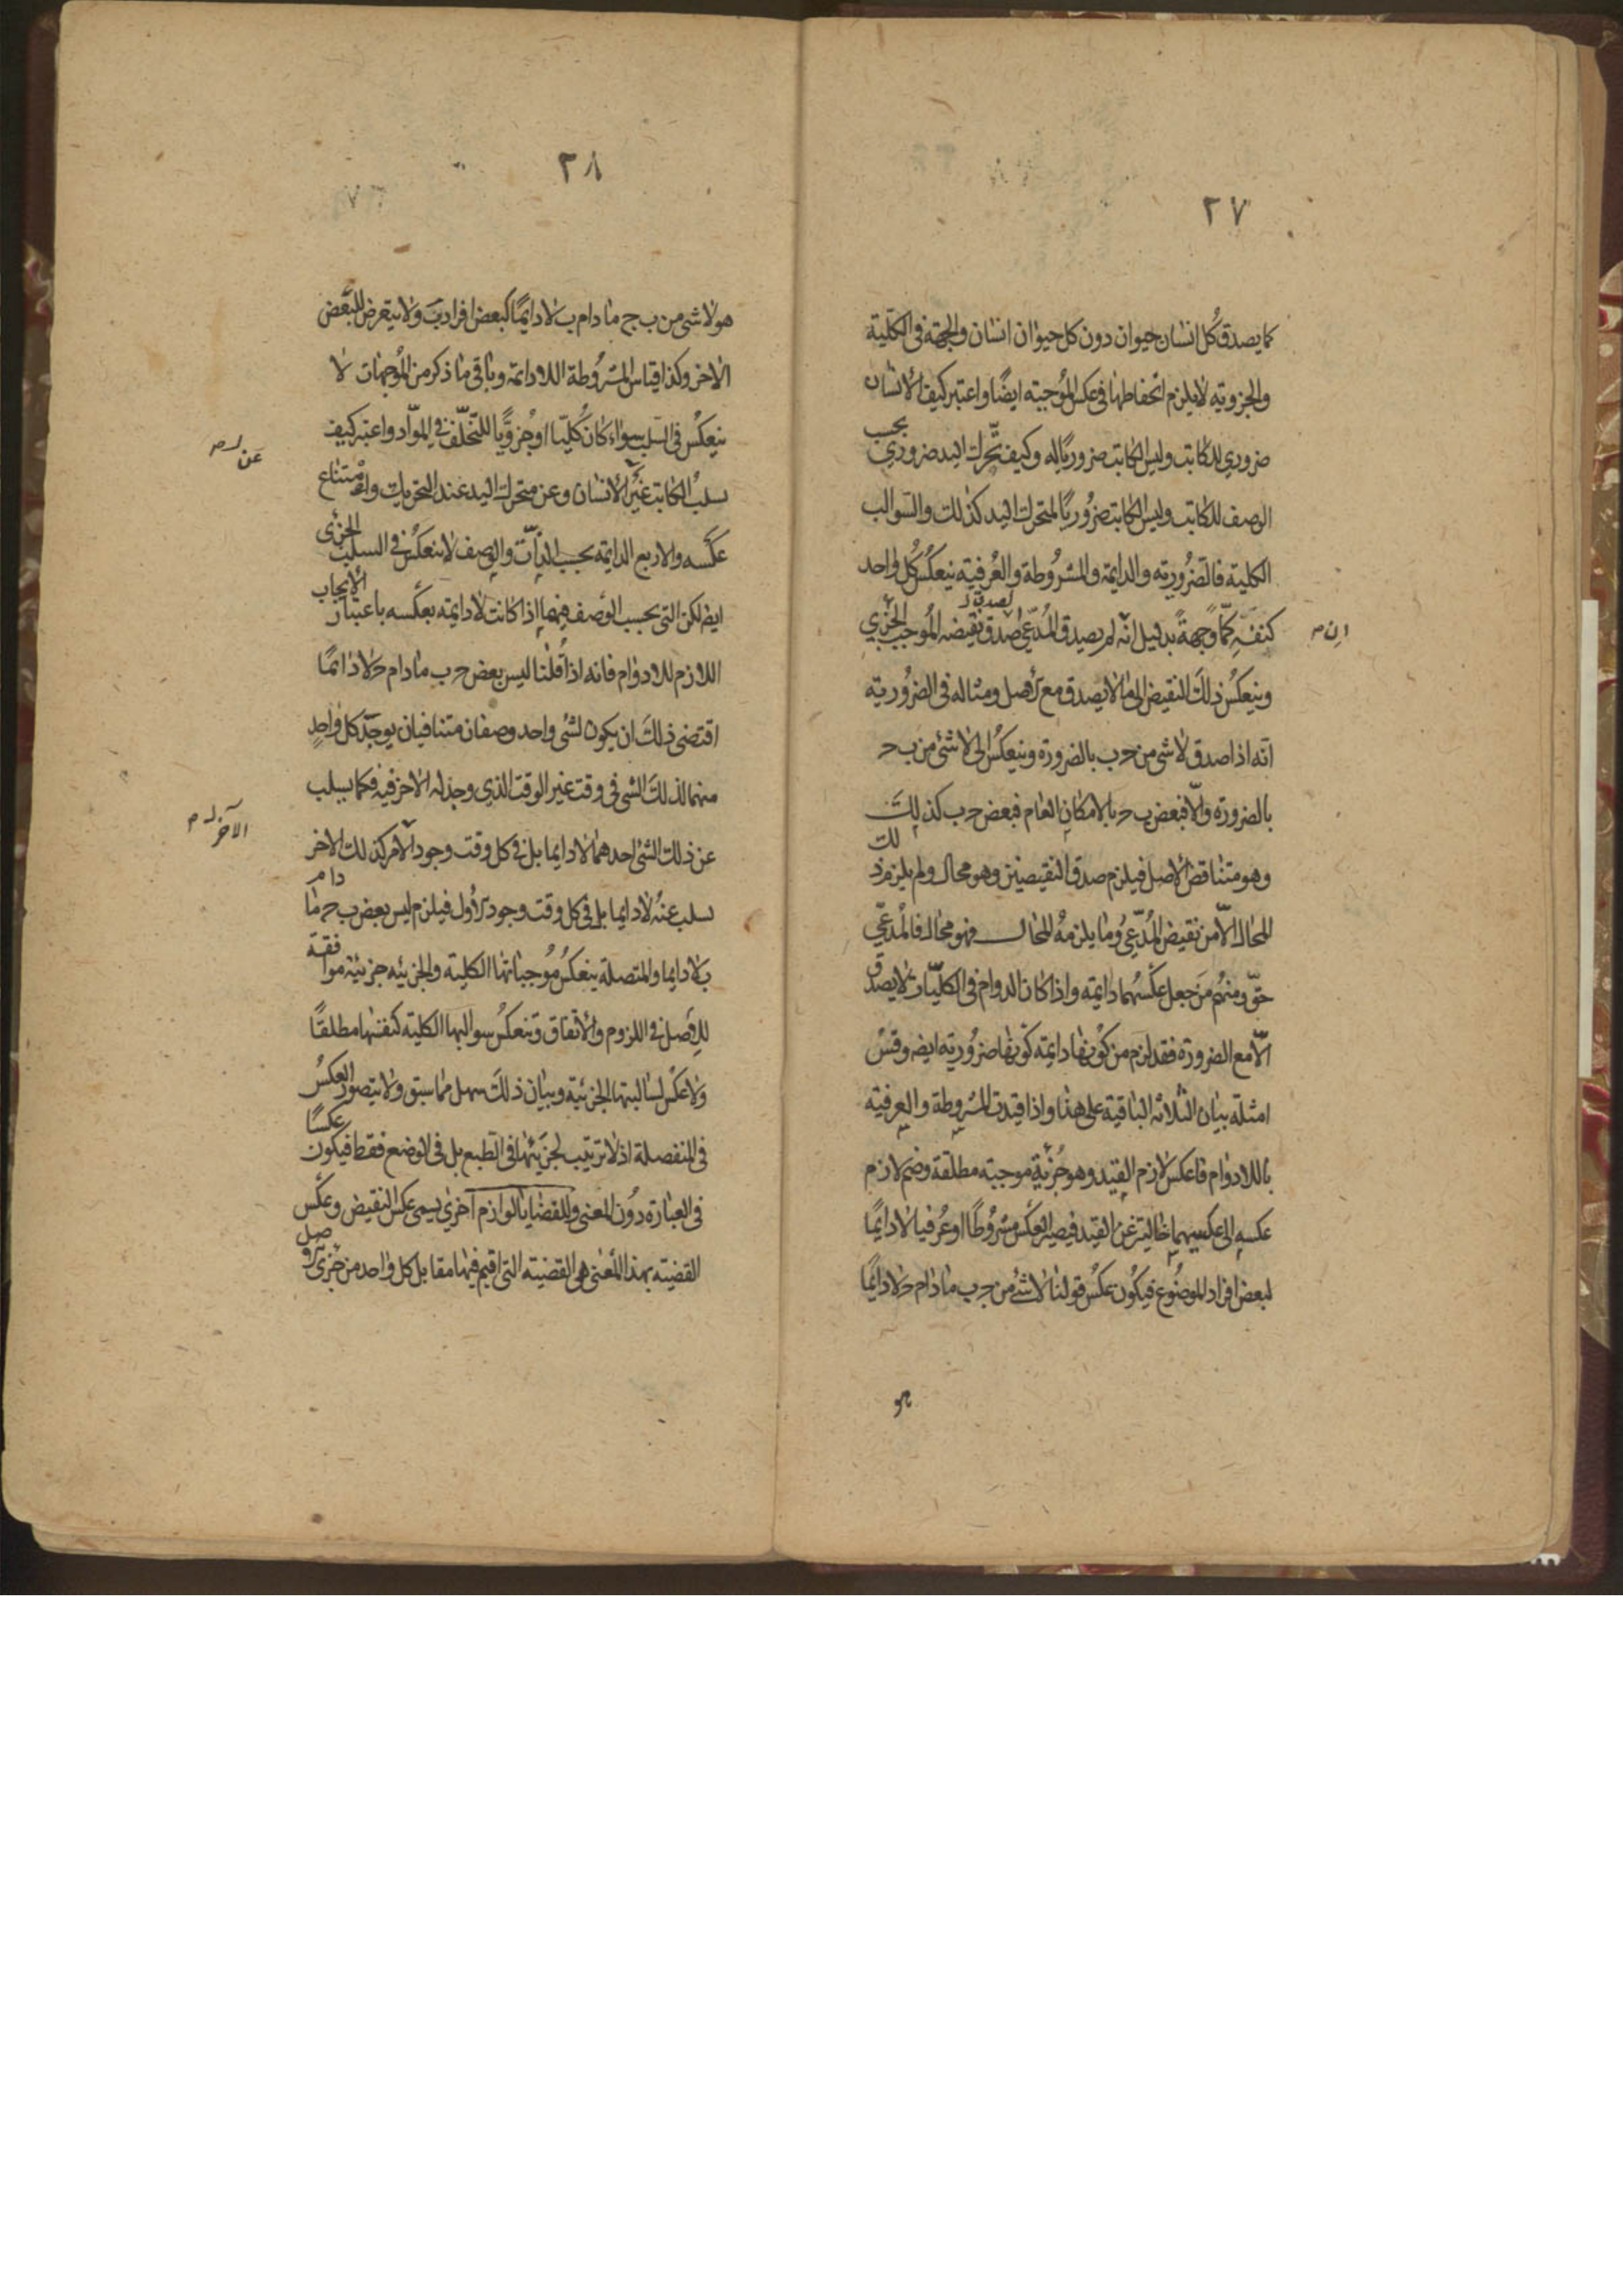 ٢٧
كما يصدق كل انسان حيوان دون كل حيوان انسان والجهة فى الكلية
والجزوية لا يلزم انحفاظها فى عكس الموجبة ايضًا واعتبر كيف الانسان
ضروري للكاتب وليس الكاتب ضروريًا له وكيف تحرك اليد ضروري بحسب
الوصف للكاتب وليس الكاتب ضروريًا لمتحرك اليد كذلك والسوالب
الكلية فالضرورية والدايمة والمشروطة والعرفية ينعكس كل واحد
كنفسه كمًّا وجهةً بدليل انه لم يصدق المدّعى لصدق نقيضه الموجب الجزي
ان م
وينعكس ذلك النقيض الى ما لا يصدق مع الاصل ومثاله فى الضرورية
انه اذا صدق لا شى من حـ ب بالضرورة وينعكس الى لا شئ من ب حـ
بالضرورة والّا فبعض ب حـ بالامكان العام فبعض حـ ب كذلك
وهو متناقض الاصل فيلزم صدق النقيضين وهو محال ولم يلزم ذلك
المحال الّا من نقيض المدّعى وما يلزمه المحال فهو محال فالمدعى
حقّ ومنهم من جعل عكسهما دايمة واذا كان الدوام فى الكليّات لا يصدق
الّا مع الضرورة فقد لزم من كونها دايمة كونها ضرورية ايضه وقس
امثلة بيان الثلاثه الباقية على هذا واذا قيدت المشروطة والعرفية
باللادوام فاعكس لازم القيد وهو جزئية موجبة مطلقة وضم لازم
عكسه الى عكسيهما خالية عن القيد فيصير العكس مشروطًا او عرفيا لا دايمًا
لبعض افراد الموضوع فيكون عكس قولنا لا شئ من حـ ب ما دام حـ لا دايمًا
هو
٢٨
هو لا شى من ب ج ما دام ب لا دايمًا كبعض افراد ب ولا يتعرض للبعض
الاخر وكذا قياس المشروطة اللادايمة وباقى ما ذكر من الموجهات لا
ينعكس فى السلب سواء كان كليّا او جزويًّا للتخلّف فى الموادّ واعتبر كيف
سلب الكاتب عن الانسان وعن متحرك اليد عند التحريك وامتناع
عن م
عكسه والاربع الدايمة بحسب الذات والوصف لا ينعكس فى السلب الجزئى
ايضا لكن التى بحسب الوصف منهما اذا كانت لا دايمة بعكسه باعتبار الايجاب
اللازم للادوام فانه اذا قلنا ليس بعض حـ ب ما دام حـ لا دائمًا
اقتضى ذلك ان يكون لشئ واحد وصفان متنافيان يوجد كل واحدٍ
منهما لذلك الشى فى وقت غير الوقت الذي وجد له الاخر فيه فكما يسلب
عن ذلك الشئ احدهما لا دايما بل فى كل وقت وجود الآخر كذلك الاخر
الآخر م
يسلب عنه لا دايما بل فى كل وقت وجود الاول فيلزم ليس بعض ب حـ ما دام
ب لا دايما والمتصلة ينعكس موجباتها الكلية والجزئيه جزئية موافقة
للاصل فى اللزوم والاتفاق وتنعكس سوالبها الكلية كنفسها مطلقًا
ولا عكس لسالبتها الجزئية وبيان ذلك سهل مما سبق ولا يتصور العكس
فى المنفصلة اذ لا ترتيب لجزئيها فى الطبع بل فى الوضع فقط فيكون عكسًا
فى العبارة دون المعنى وللقضايا لوازم اخرى يسمى عكس النقيض وعكس
القضية بهذا المعنى هى القضية التى اقيم فيها مقابل كل واحد من جزئى الاصل